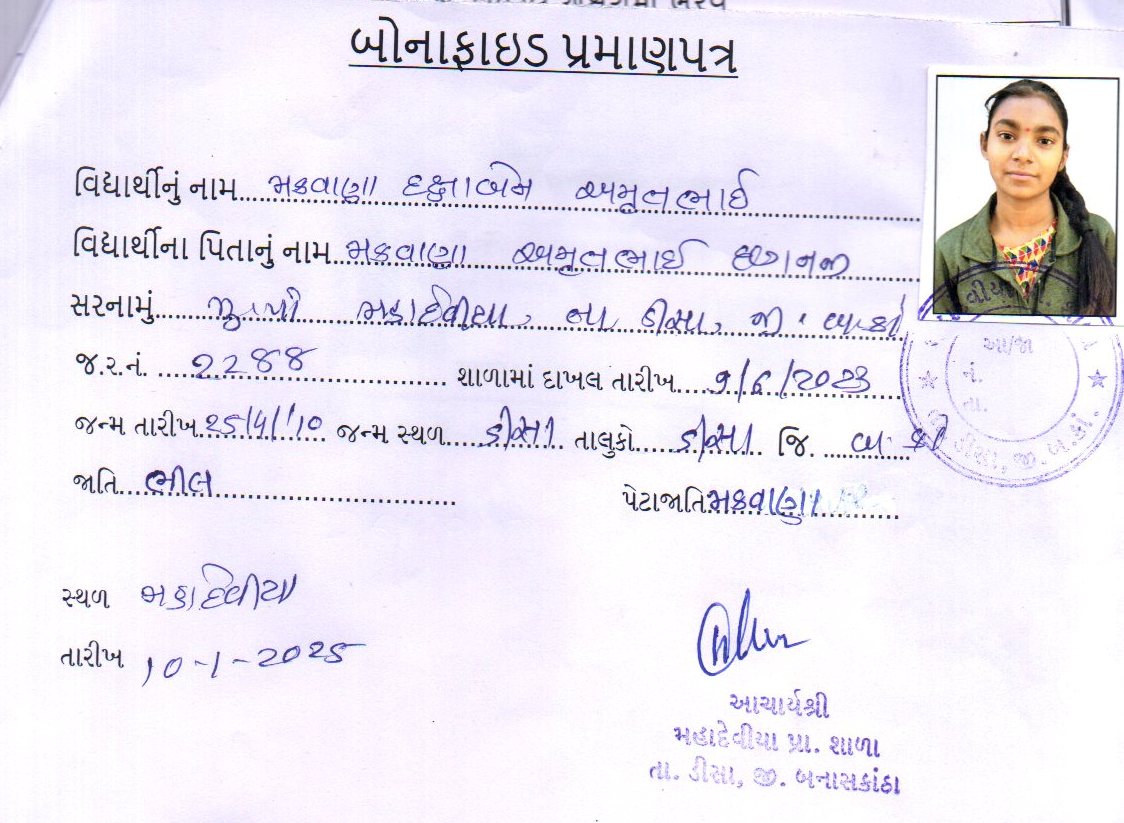 બોનાફાઇડ પ્રમાણપત્ર
વિદ્યાર્થીનું નામ મકવાણા દક્ષાબેન અમૂલભાઈ
વિદ્યાર્થીના પિતાનું નામ મકવાણા અમૂલભાઈ છગનજી
સરનામું મુ.પો મહાદેવીયા, તા ડીસા, જી. બા.કાં
જ.ર.નં. 2288 શાળામાં દાખલ તારીખ 9/6/2023
જન્મ તારીખ 25/4/'10 જન્મ સ્થળ ડીસા તાલુકો ડીસા જિ. બા કાં
જાતિ ભીલ પેટાજાતિ મકવાણા
આ/જા
નં.
તા.
તા. ડીસા, જી. બ.કાં.
સ્થળ મહાદેવીયા
તારીખ 10-1-2025
આચાર્યશ્રી
મહાદેવીયા પ્રા. શાળા
તા. ડીસા, જી. બનાસકાંઠા